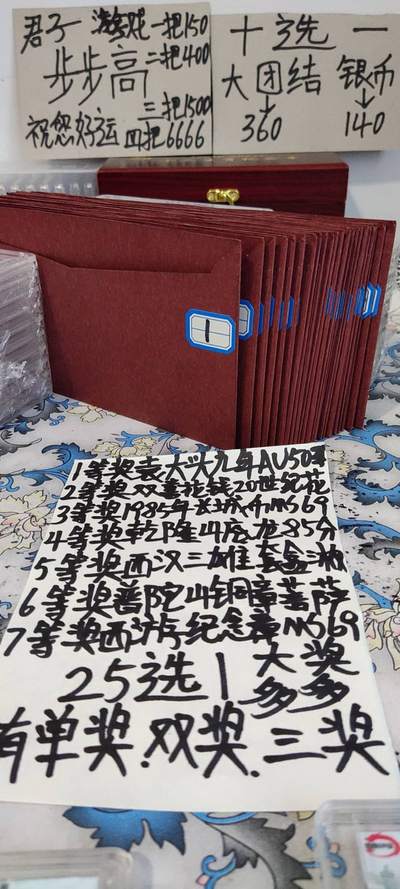 君子一游戏一把150
步步高 二把400
三把1500
祝您好运 四把6666
十选一
大团结 银币
360 140
1
1等奖袁大头九年AU50
2等奖双
3等奖1985年长城币MS69
4等奖乾隆山底龙85分
5等奖西汉三雄套盒
6等奖普陀山铜章菩萨
7等奖西游纪念章MS69
25选1 大奖多多
有单奖.双奖.三奖